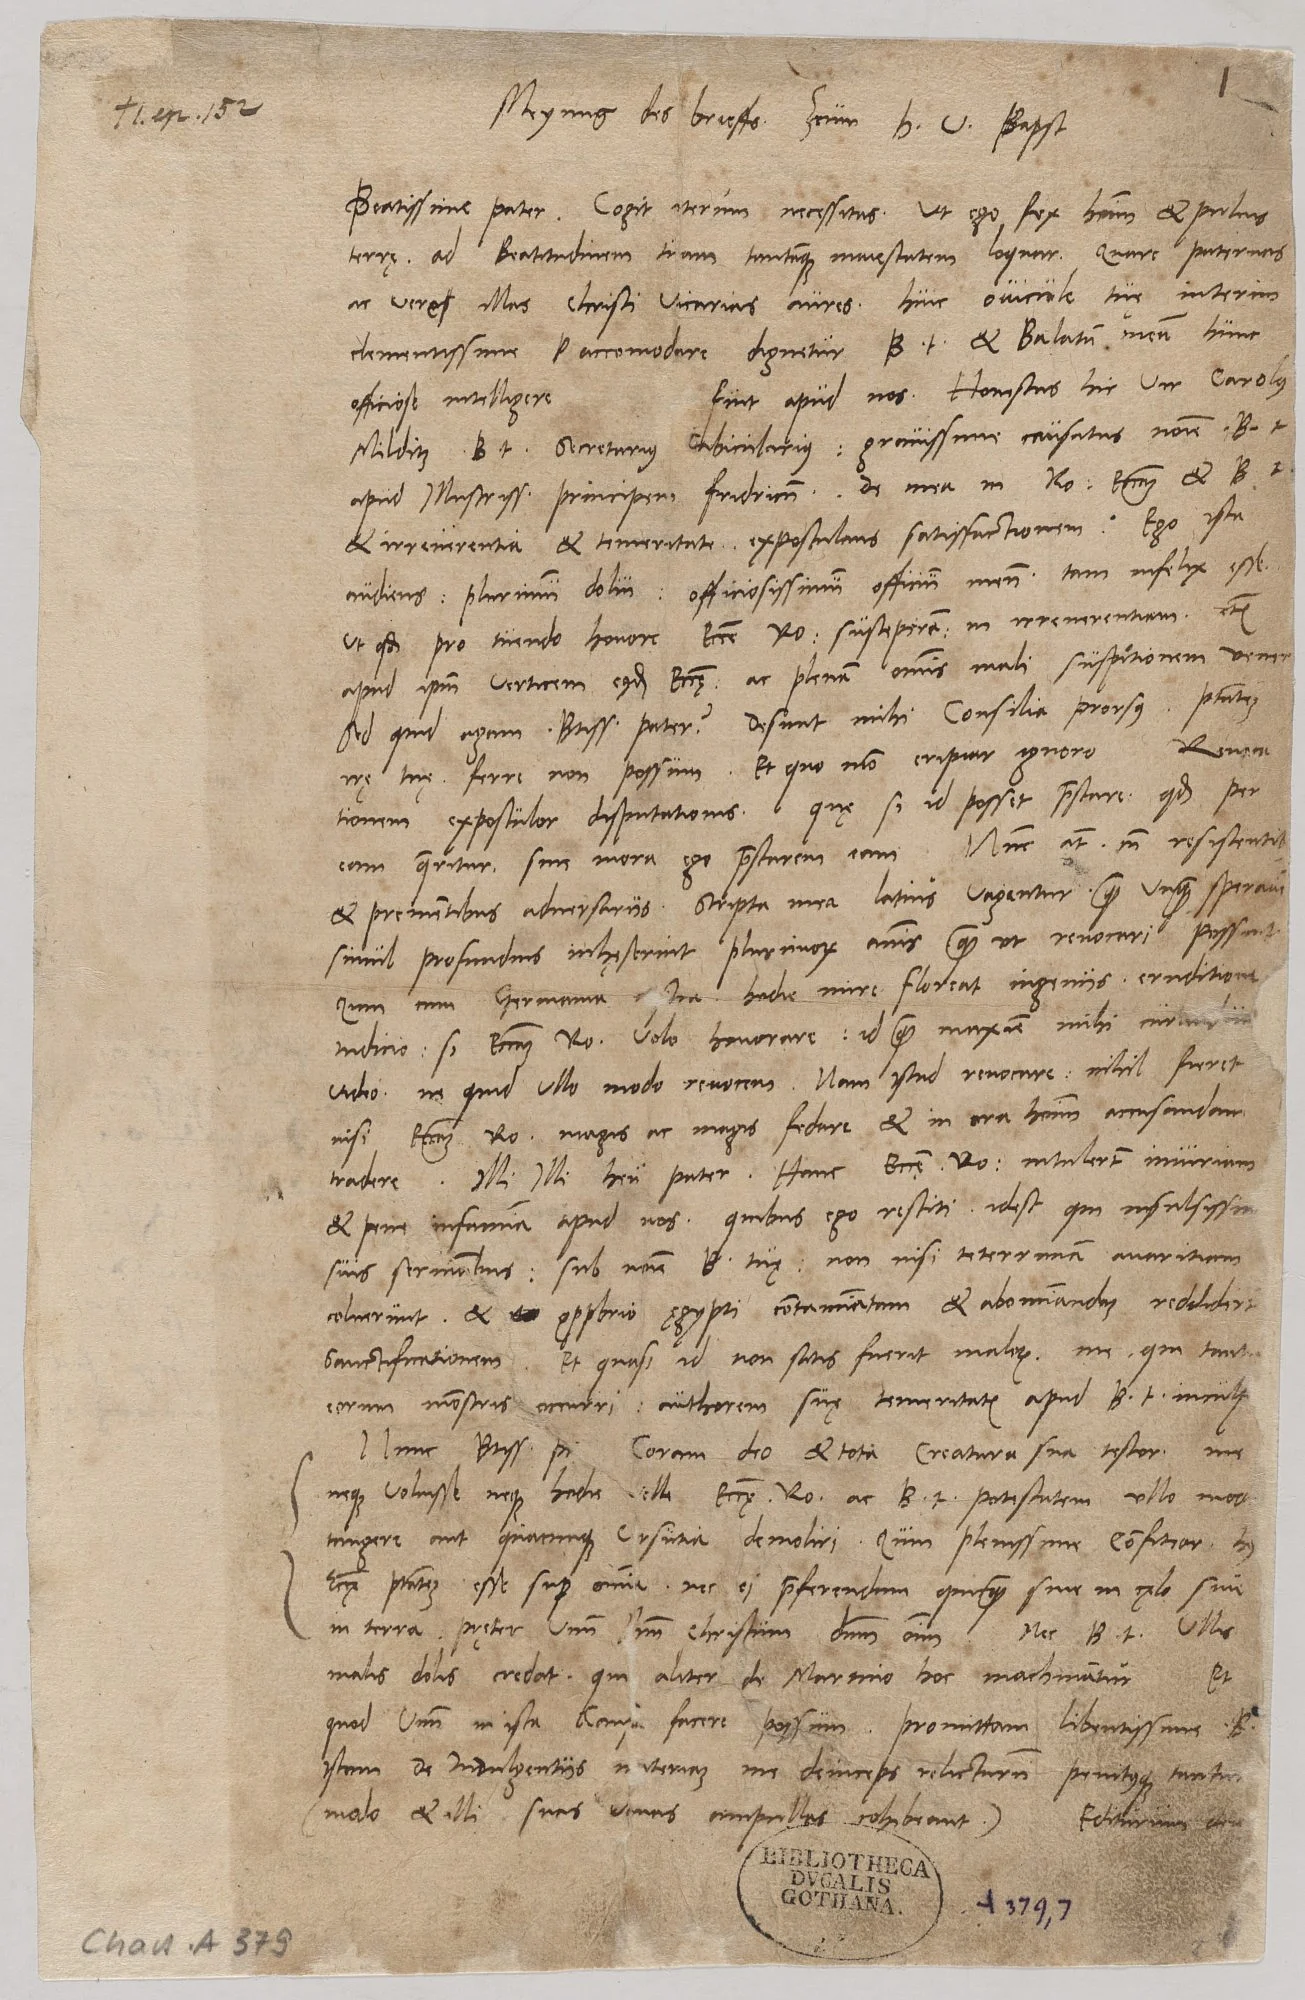 Tl. ep. 152
1
Meynug des brieffs. zcum h. V. Bapst
Beatissime pater. Cogit iterum necessitas. Ut ego fex hoīm & puluis
terrę. ad Beatitudinem tuam tantāq maiestatem loquar. Quare paternas
ac vere illas Christi Vicarias aures. huic ouicule tue interim
clementissime accomodare dignetur B. t. & Balatū meū hunc
officiose intelligere fuit apud nos. Honestus hic Vir Carolus
Milditz B t. Secretarius Cubicularius: grauissime causatus noīe B. t
apud Illustriss. principem fridricū. De mea in Ro: Eccām & B. t.
& irreuerentia & temeritate. expostulans satisfactionem: Ego ista
audiens: plurimum dolui: officiosissimū officiū meū. tam infelix esse.
Ut qd pro tuendo honore Eccē Ro: susceperā: in irreuerentiam. etiā
apud ipm verticem eiusd Eccę: ac plenā omīs mali suspitionem vener
Sed quid agam. Btiss. pater? Desunt mihi Consilia prorsus. ptātē
irę tuę. ferre non possum. Et quo mō eripiar ignoro Reuoca
tionem expostulor disputationis. quę si id posset pstare. qd per
eam queritur. sine mora ego pstarem eam Nunc at. cū resistentib
& prementibus aduersariis. scripta mea latius vagentur. q̄ unq̄ speraue
simul profundius inhęserint plurimorū aīs q̄ ut reuocari possint
Quin cum Germania nra hodie mire floreat ingeniis. eruditione
iudicio: si Eccām Ro. Volo honorare: id q̄ maxīe mihi
video. ne quid Ullo modo reuocem. Nam istud reuocare: nihil fieret
nisi Eccām Ro. magis ac magis fedare & in ora hoīm accusandam
tradere. Illi Illi heu pater. Hanc Eccę. Ro: intulerūt iniuriam
& pene infamiā apud nos. quibus ego restiti. idest qui insulsissim
suis sermōibus: sub noīe B. tuę: non nisi teterrimā auaritiam
coluerunt. & opprobrio ęgypti cōtamiātam & abomīandā reddider
Sanctificationem. Et quasi id non satis fuerit maloꝝ. me. qui tant
eorum mōstris occurri: authorem suę temeritatis apud B. t. inculp
Nunc Btiss. pr Coram deo & tota Creatura sua testor. me
neq voluisse neq hodie velle Eccę. Ro. ac B. t. potestatem ullo mod
tangere aut quacunq Versutia demoliri. Quin plenissime Confiteor. hu
Eccę ptātē esse sup omīa. nec ei pferendum quicq̄ siue in cęlo siue
in terra. pręter Unū Iesum Christum dnm oīm. Nec B. t. Ullis
malis dolis credat. qui aliter de Martino hoc machināntur Et
quod Unū in ista causa facere possum. promittam libentissime B.
istam de Indulgentiis materiā me deinceps relicturū penitusq tacitur
(modo & illi suas vanas ampullas cohibeant) Editurum
BIBLIOTHECA
DVCALIS
GOTHANA.
A 379,7
Chart. A 379